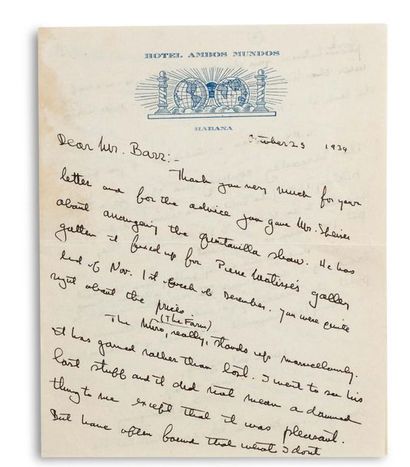 HOTEL AMBOS MUNDOS
HABANA
October 23 1934
Dear Mr. Barr:-
Thank you very much for your
letter and for the advice you gave Mr.
about arranging the Quintanilla show. He has
gotten it fixed up for Pierre Matisse's gallery
end of Nov. 1st of December. You were quite
right about the prices
(The Farm)
The Miro, really, stands up marvellously.
It has gained rather than lost. I went to see his
last stuff and it did not mean a damned
thing to me except that it was pleasant.
But have often found that what I dont